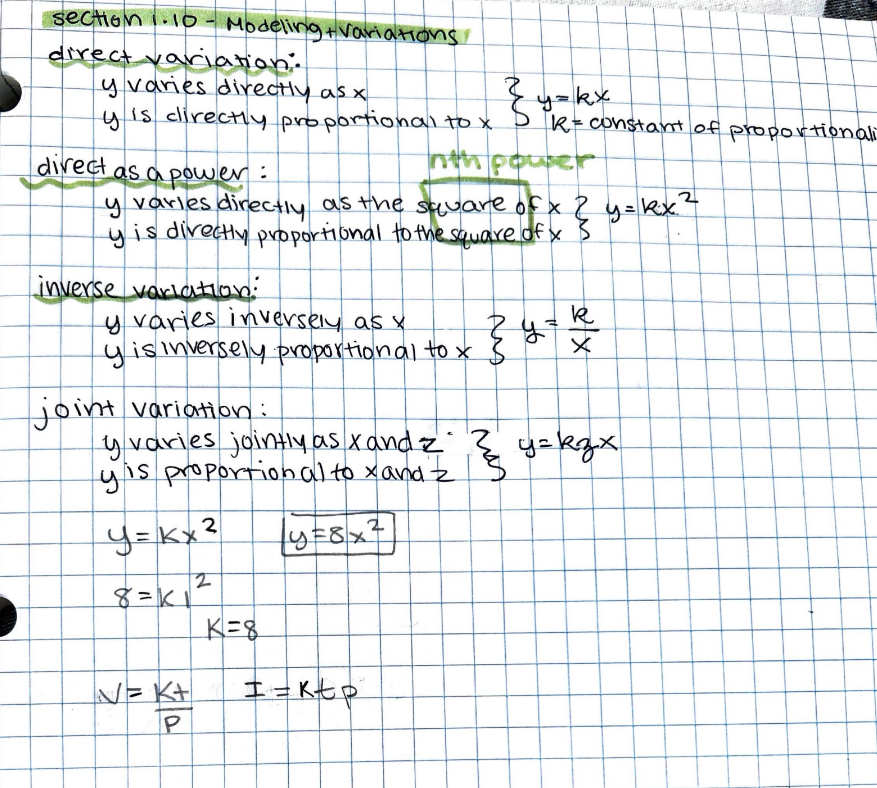 section 1.10 - Modeling + variations
direct variation:
y varies directly as x } y = kx
y is directly proportional to x } k = constant of proportionali
direct as a power : nth power
y varies directly as the square of x } y = kx²
y is directly proportional to the square of x
inverse variation:
y varies inversely as x } y = k/x
y is inversely proportional to x
joint variation:
y varies jointly as x and z } y = kzx
y is proportional to x and z
y = Kx² y = 8x²
8 = K1²
K = 8
V = Kt/P I = Ktp